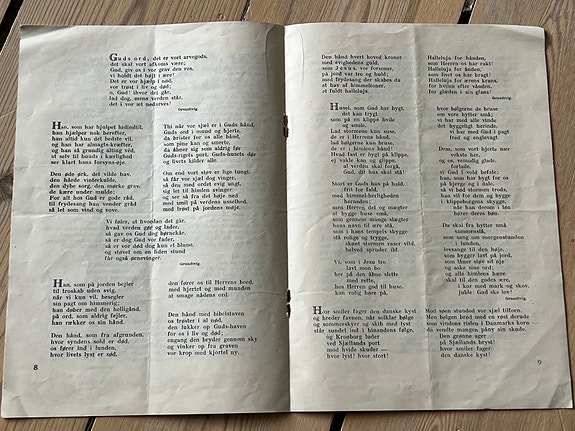 Guds ord, det er vort arvegods,
det skal vort afkoms være;
Gud, giv os i vor grav den ros,
vi holdt det højt i ære!
Det er vor hjælp i nød,
vor trøst i liv og død;
o, Gud! ihvor det går,
lad dog, mens verden står,
det i vor æt nedarves!
Grundtvig.
Han, som har hjulpet hidindtil,
han hjælper nok herefter,
han altid kun det bedste vil,
og han har almagts-kræfter,
og han så grundig alting véd,
at selv til bunds i kærlighed
ser klart hans forsyns-øje.
Den øde ørk, det vilde hav,
den hårde vinterkulde,
den dybe sorg, den mørke grav,
de kære under mulde:
For alt hos Gud er gode råd,
til frydesang han vender gråd
så let som vind og vove.
Thi når vor sjæl er i Guds hånd,
Guds ord i mund og hjerte,
da brister for os alle bånd,
som pine kan og smerte,
da åbner sig som aldrig før
Guds-rigets port, Guds-husets dør
og livets kilder alle.
Om end vort støv er lige tungt,
så får vor sjæl dog vinger,
så den med ordet evig ungt,
sig let til himlen svinger
og ser så fra det høje ned
med smil på verdens usselhed,
med trøst på jordens møje.
Vi føler, at hvordan det går,
hvad verden gør og lader,
så gav os Gud dog børnekår,
så er dog Gud vor fader,
så er vor død dog kun et blund,
og støvet om en liden stund
får også åenevinger.
Grundtvig.
Han, som på jorden bejler
til troskab uden svig,
når vi kun vil, besegler
sin pagt om himmerig;
han døber med den helligånd,
på ord, som aldrig fejler,
han rækker os sin hånd.
Den hånd, som fra afgrunden,
hvor syndens sold er død,
os fører ind i lunden,
hvor livets lyst er sød,
den fører os til Herrens bord,
med hjertet og med munden
at smage nådens ord.
Den hånd med bibelstaven
os trøster i al nød,
den lukker op Guds-haven
for os i liv og død;
engang den bryder gennem sky
og vinker op fra graven
vor krop med kjortel ny.
8
Den hånd hvert hoved kroner
med evighedens guld,
som Jesus, vor forsoner,
på jord var tro og huld;
med frydesang der skabes du
et hav af himmeltoner,
et fuldt halleluja.
Halleluja for hånden,
som Herren os har rakt!
Halleluja for ånden,
som livet os har bragt!
Halleluja for ærens krans,
for hvilen efter vånden,
for glæden i sin glans!
Grundtvig.
Huset, som Gud har bygt,
det kan trygt
som på en klippe hvile
og smile.
Lad stormene kun suse,
de er i Herrens hånd,
lad bølgerne kun bruse,
de er i hindens bånd!
Hvad fast er bygt på klippe,
ej vakle kan og glippe,
al verden skal forgå,
Gud, dit hus skal stå!
Stort er Guds hus på bald,
frit for fald,
med himmel-herligheden
heranden;
men Herren det og mægter
at bygge huse små,
gennem mange slægter
huns navn til ære stå,
som i hans tempels skygge
stå rolige og trygge,
skønt stormen raser vild,
helved spruder ild.
Vi, som i Jesu tro
last mon bo
her på den åbne slette
med rette,
hos Herren god til huse,
kan rolig høre på,
hvor bølgerne de bruse
om vore hytter små;
vi har med alle vinde
det hyggeligt herinde,
vi har med Gud i pagt
fred og englevagt.
Dem, som vort hjerte nær
vokste her,
og os, vemodig glade,
forlade,
vi Gud i vold befale;
han, som har bygt for os
på bjerge og i dale,
så vi bød stormen trods,
has vil for dem og bygge
i klippeborgens skygge,
når han deruu i løn
hører deres bøn.
Du skal fra hytter små
sammenslå,
som sang om morgenstunden
i lunden,
lovsange til den høje,
som hygger last på jord,
som åner støv sit øje
og aske sine ord;
og alle himlens hære
skal til den godes ære,
i kor med mark og skov,
juble: Gud ske lov!
Grundtvig.
Hvor smiler fager den danske kyst
og breder favnen, når solklar bølge
og sommerskyer og skib med lyst
står sundet ind i hinandens følge,
og Kronborg luder
ved Sjællands port
mod hvide skuder —
hvor lyst! hvor stort!
Mod søen stundod vor sjæl tilforn.
Men bølgen brød med en røst derude
som vindens rislen i Danmarks korn —
da vendte mangen påny sin skude.
Den grønne péner
på Sjællands bryst!
hvor smiler fager
den danske kyst!
9